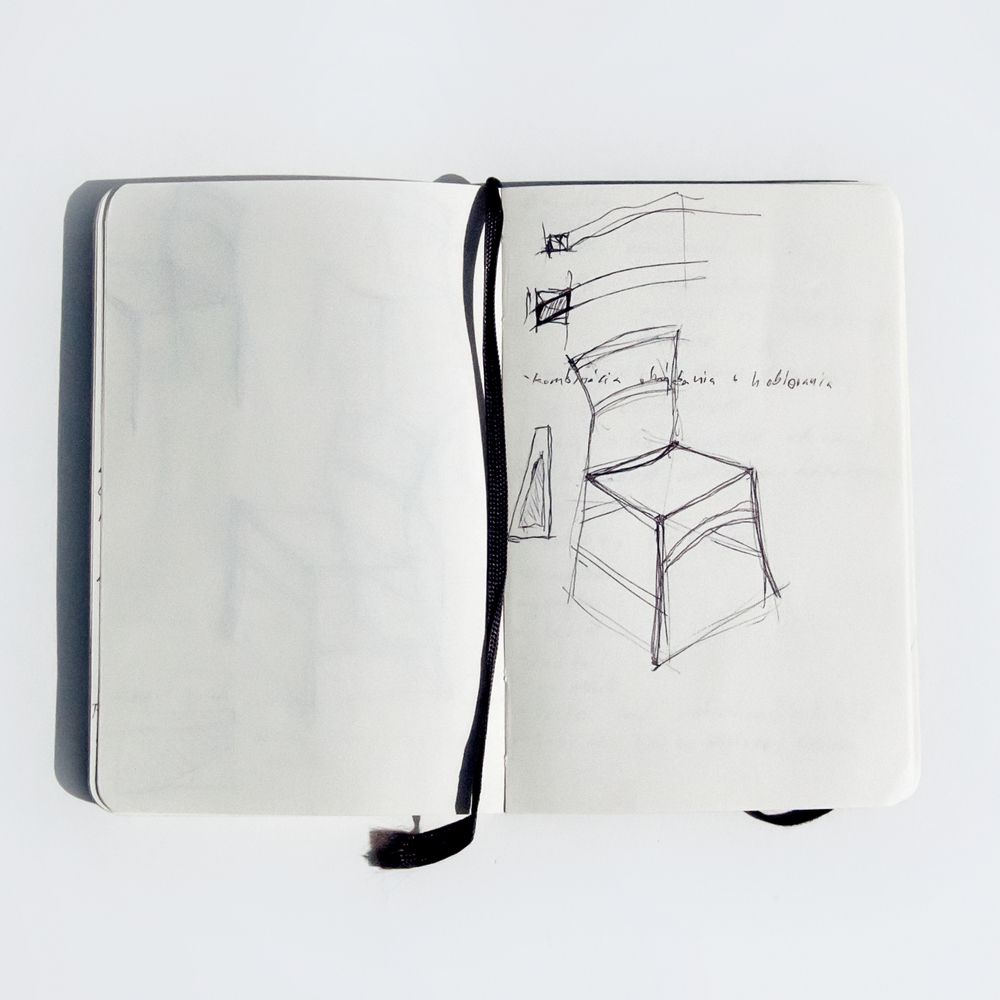 - kombinácia ohýbania a hoblovania